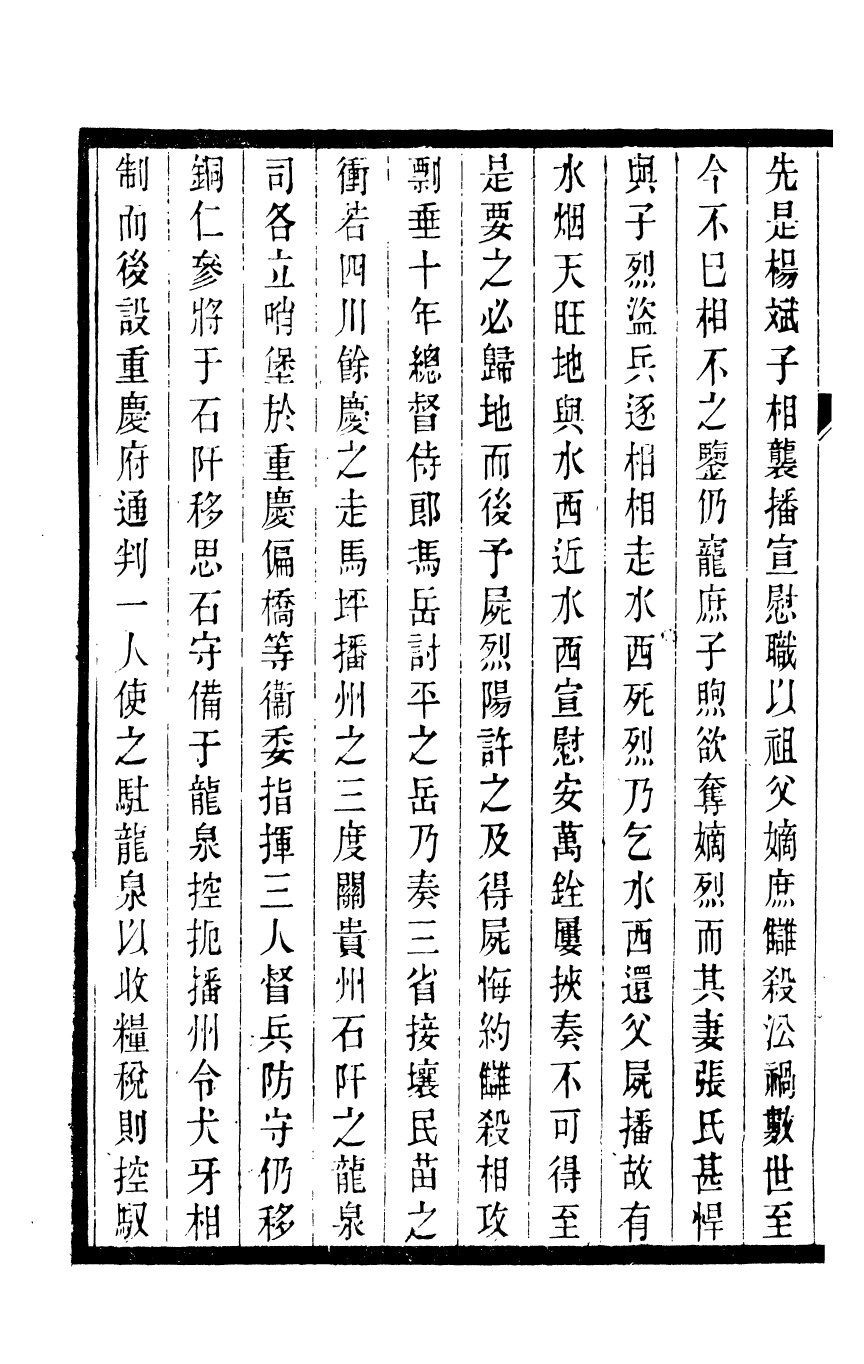 先是楊斌子相襲播宣慰職以祖父嫡庶讎殺公禍數世至
今不已相不之鑒仍寵庶子煦欲奪嫡烈而其妻張氏甚悍
與子烈盜兵逐相相走水西死烈乃乞水西還父屍播故有
水烟天旺地與水西近水西宣慰安萬銓屢挾奏不可得至
是要之必歸地而後予屍烈陽許之及得屍悔約讎殺相攻
剽垂十年總督侍郎馮岳討平之岳乃奏三省接壤民苗之
衝若四川餘慶之走馬坪播州之三度關貴州石阡之龍泉
司各立哨堡於重慶偏橋等衞委指揮三人督兵防守仍移
銅仁參將于石阡移思石守備于龍泉控扼播州令犬牙相
制而後設重慶府通判一人使之駐龍泉以收糧稅則控馭